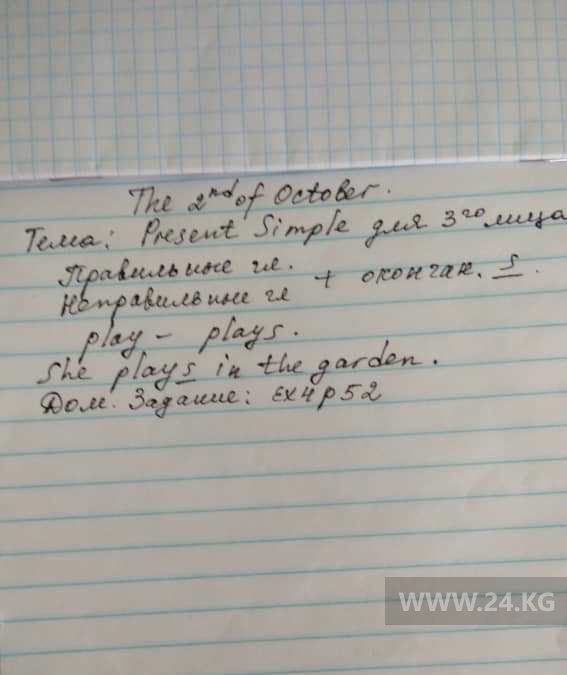 The 2nd of October.
Тема: Present Simple для 3го лица
Правильные гл.
Неправильные гл + окончан. s.
play – plays.
She plays in the garden.
Дом. Задание: Ex4p52
WWW.24.KG